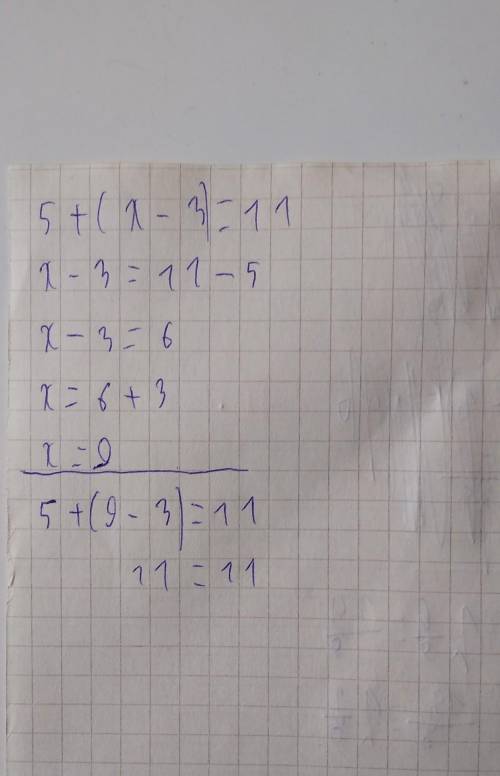 5+(x-3)=11
x-3=11-5
x-3=6
x=6+3
x=9
5+(9-3)=11
11=11